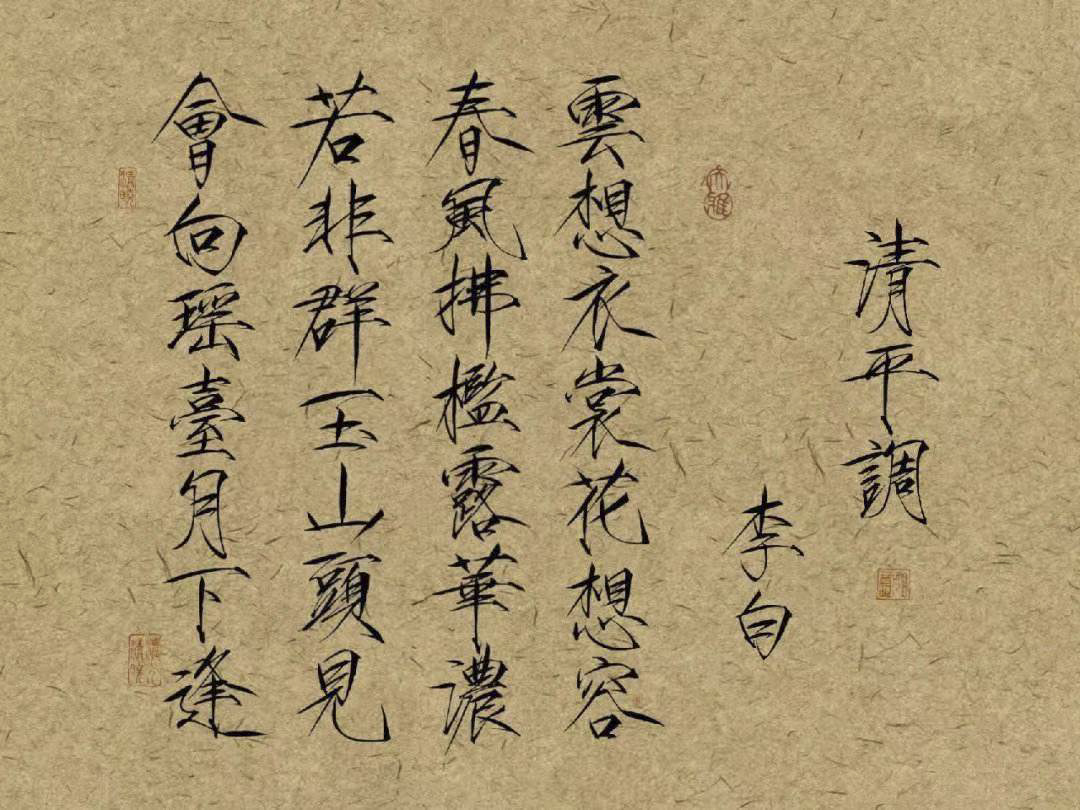 清平調
李白
雲想衣裳花想容
春風拂檻露華濃
若非群玉山頭見
會向瑶臺月下逢